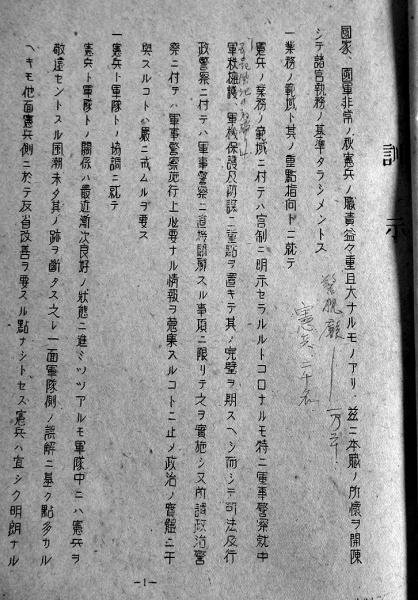 訓示
國家、國軍非常ノ秋憲兵ノ職責益々重且大ナルモノアリ、玆ニ本職ノ所懷ヲ開陳
シテ諸官執務ノ基準タラシメントス
一業務ノ範域ト其ノ重點指向トニ就テ
憲兵ノ業務ノ範域ニ付テハ官制ニ明示セラルルトコロナルモ特ニ軍事警察就中
軍秩維護、軍機保護及防諜ニ重點ヲ置キテ其ノ完璧ヲ期スヘシ而シテ司法及行
政警察ニ付テハ軍事警察ニ直接關聯スル事項ニ限リテ之ヲ實施シ又所謂政治警
察ニ付テハ軍事警察施行上必要ナル情報ヲ蒐集スルコトニ止メ政治ノ實際ニ干
與スルコトハ嚴ニ戒ムルヲ要ス
一憲兵ト軍隊トノ協調ニ就テ
憲兵ト軍隊トノ關係ハ最近漸次良好ノ狀態ニ進ミツツアルモ軍隊中ニハ憲兵ヲ
敬遠セントスル風潮未タ其ノ跡ヲ斷タス之レ一面軍隊側ノ誤解ニ基ク點多カル
ヘキモ他面憲兵側ニ於テ反省改善ヲ要スル點ナシトセス憲兵ハ宜シク明朗ナル
警視廳——一万三
憲兵 三千名
-1-